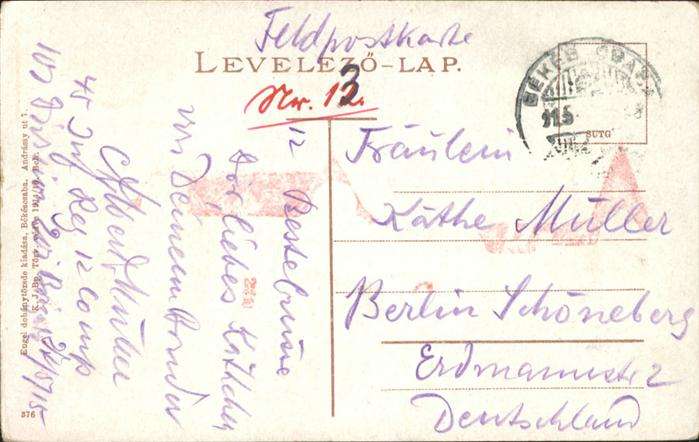 Feldpostkarte
LEVELEZŐ-LAP.
Nr. 13.
BÉKÉSCSABA
SUTG
Fräulein
Käthe Müller
Berlin Schöneberg
Erdmannstr 2
Deutschland
12
Beste Grüsse
liebes Käthchen
von Deinem Bruder
Albert Müller
45 Inf Reg 12 Comp
Engel dohánytőzsde kiadása, Békéscsaba. Andrássy út 7.
376